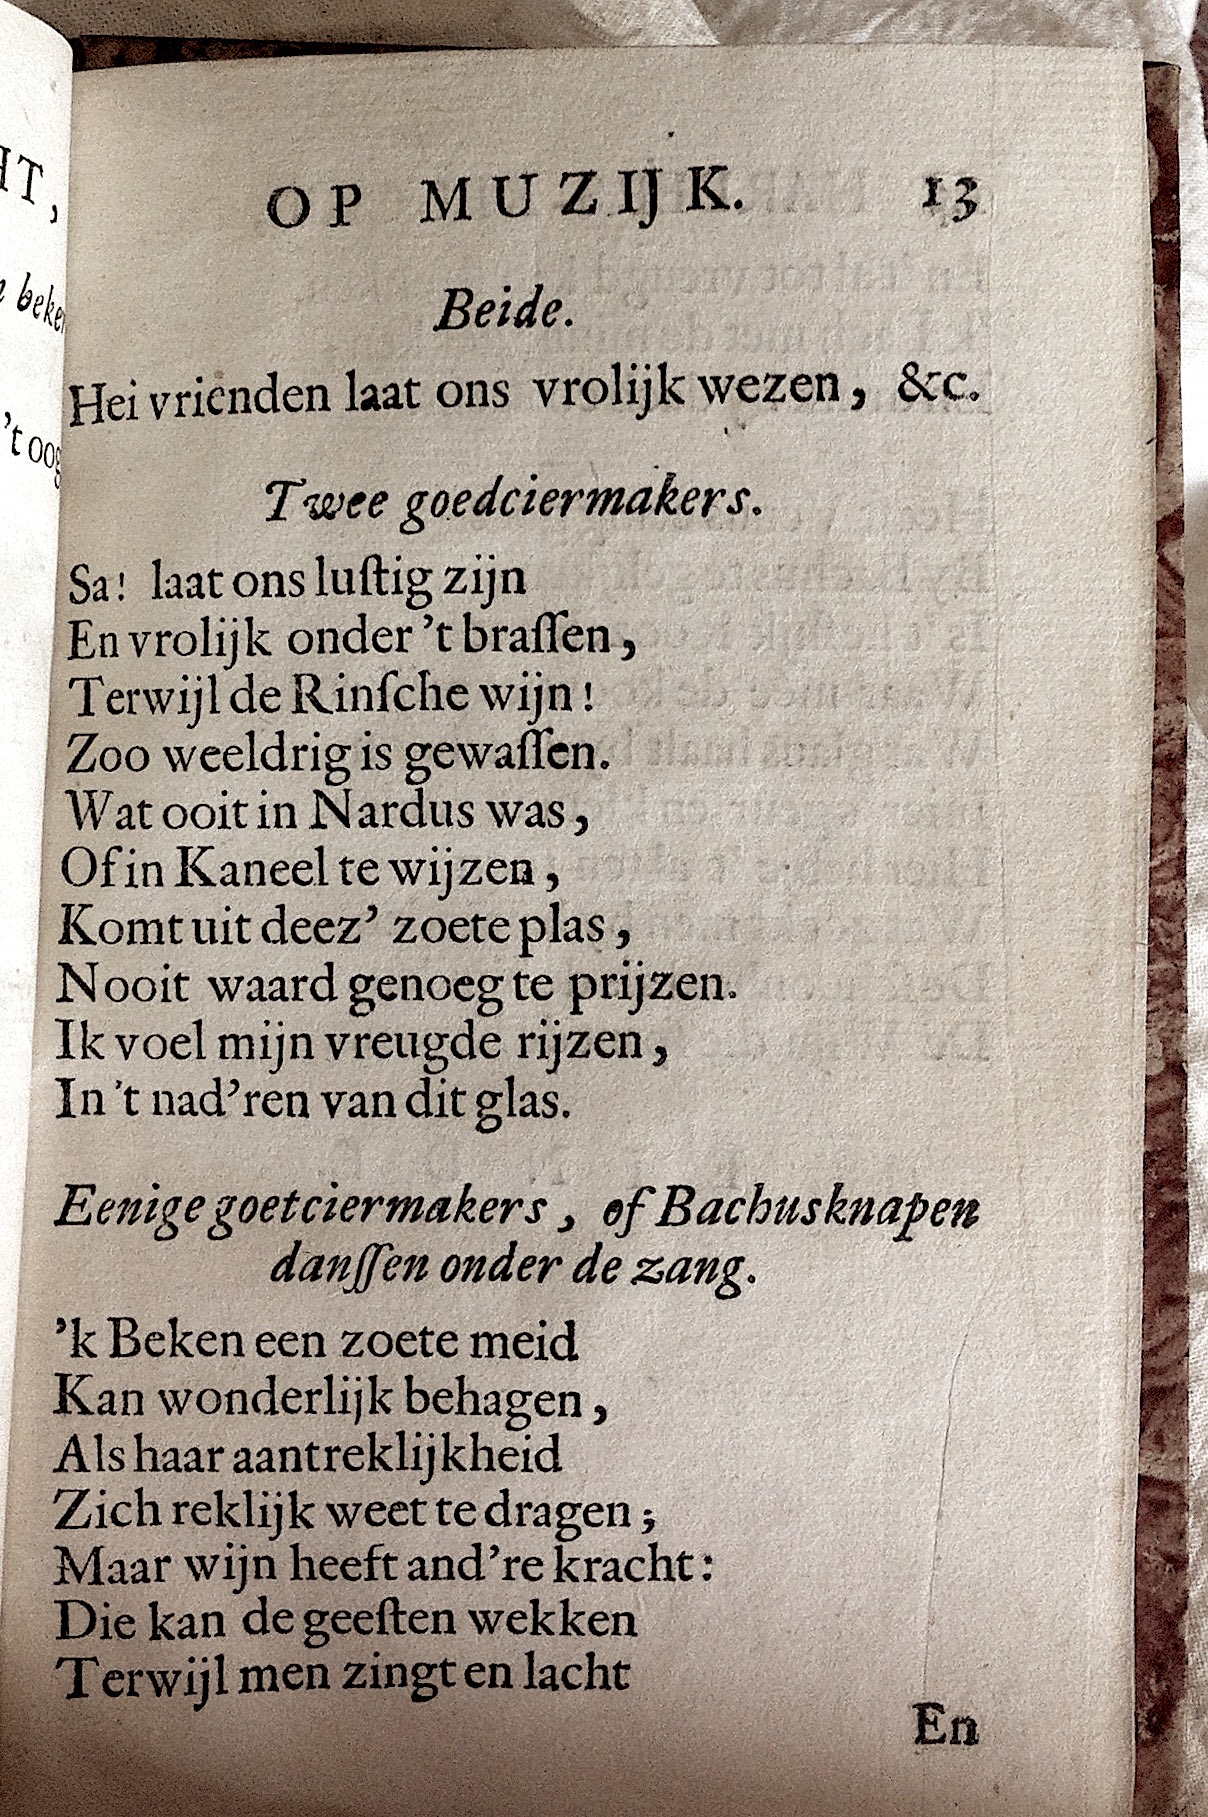 HT,
beke
't oog
OP MUZIJK. 13
Beide.
Hei vrienden laat ons vrolijk wezen, &c.
Twee goedciermakers.
Sa! laat ons luſtig zijn
En vrolijk onder 't braſſen,
Terwijl de Rinſche wijn!
Zoo weeldrig is gewaſſen.
Wat ooit in Nardus was,
Of in Kaneel te wijzen,
Komt uit deez' zoete plas,
Nooit waard genoeg te prijzen.
Ik voel mijn vreugde rijzen,
In 't nad'ren van dit glas.
Eenige goetciermakers, of Bachusknapen
danſſen onder de zang.
'k Beken een zoete meid
Kan wonderlijk behagen,
Als haar aantreklijkheid
Zich reklijk weet te dragen;
Maar wijn heeft and're kracht:
Die kan de geeſten wekken
Terwijl men zingt en lacht
En